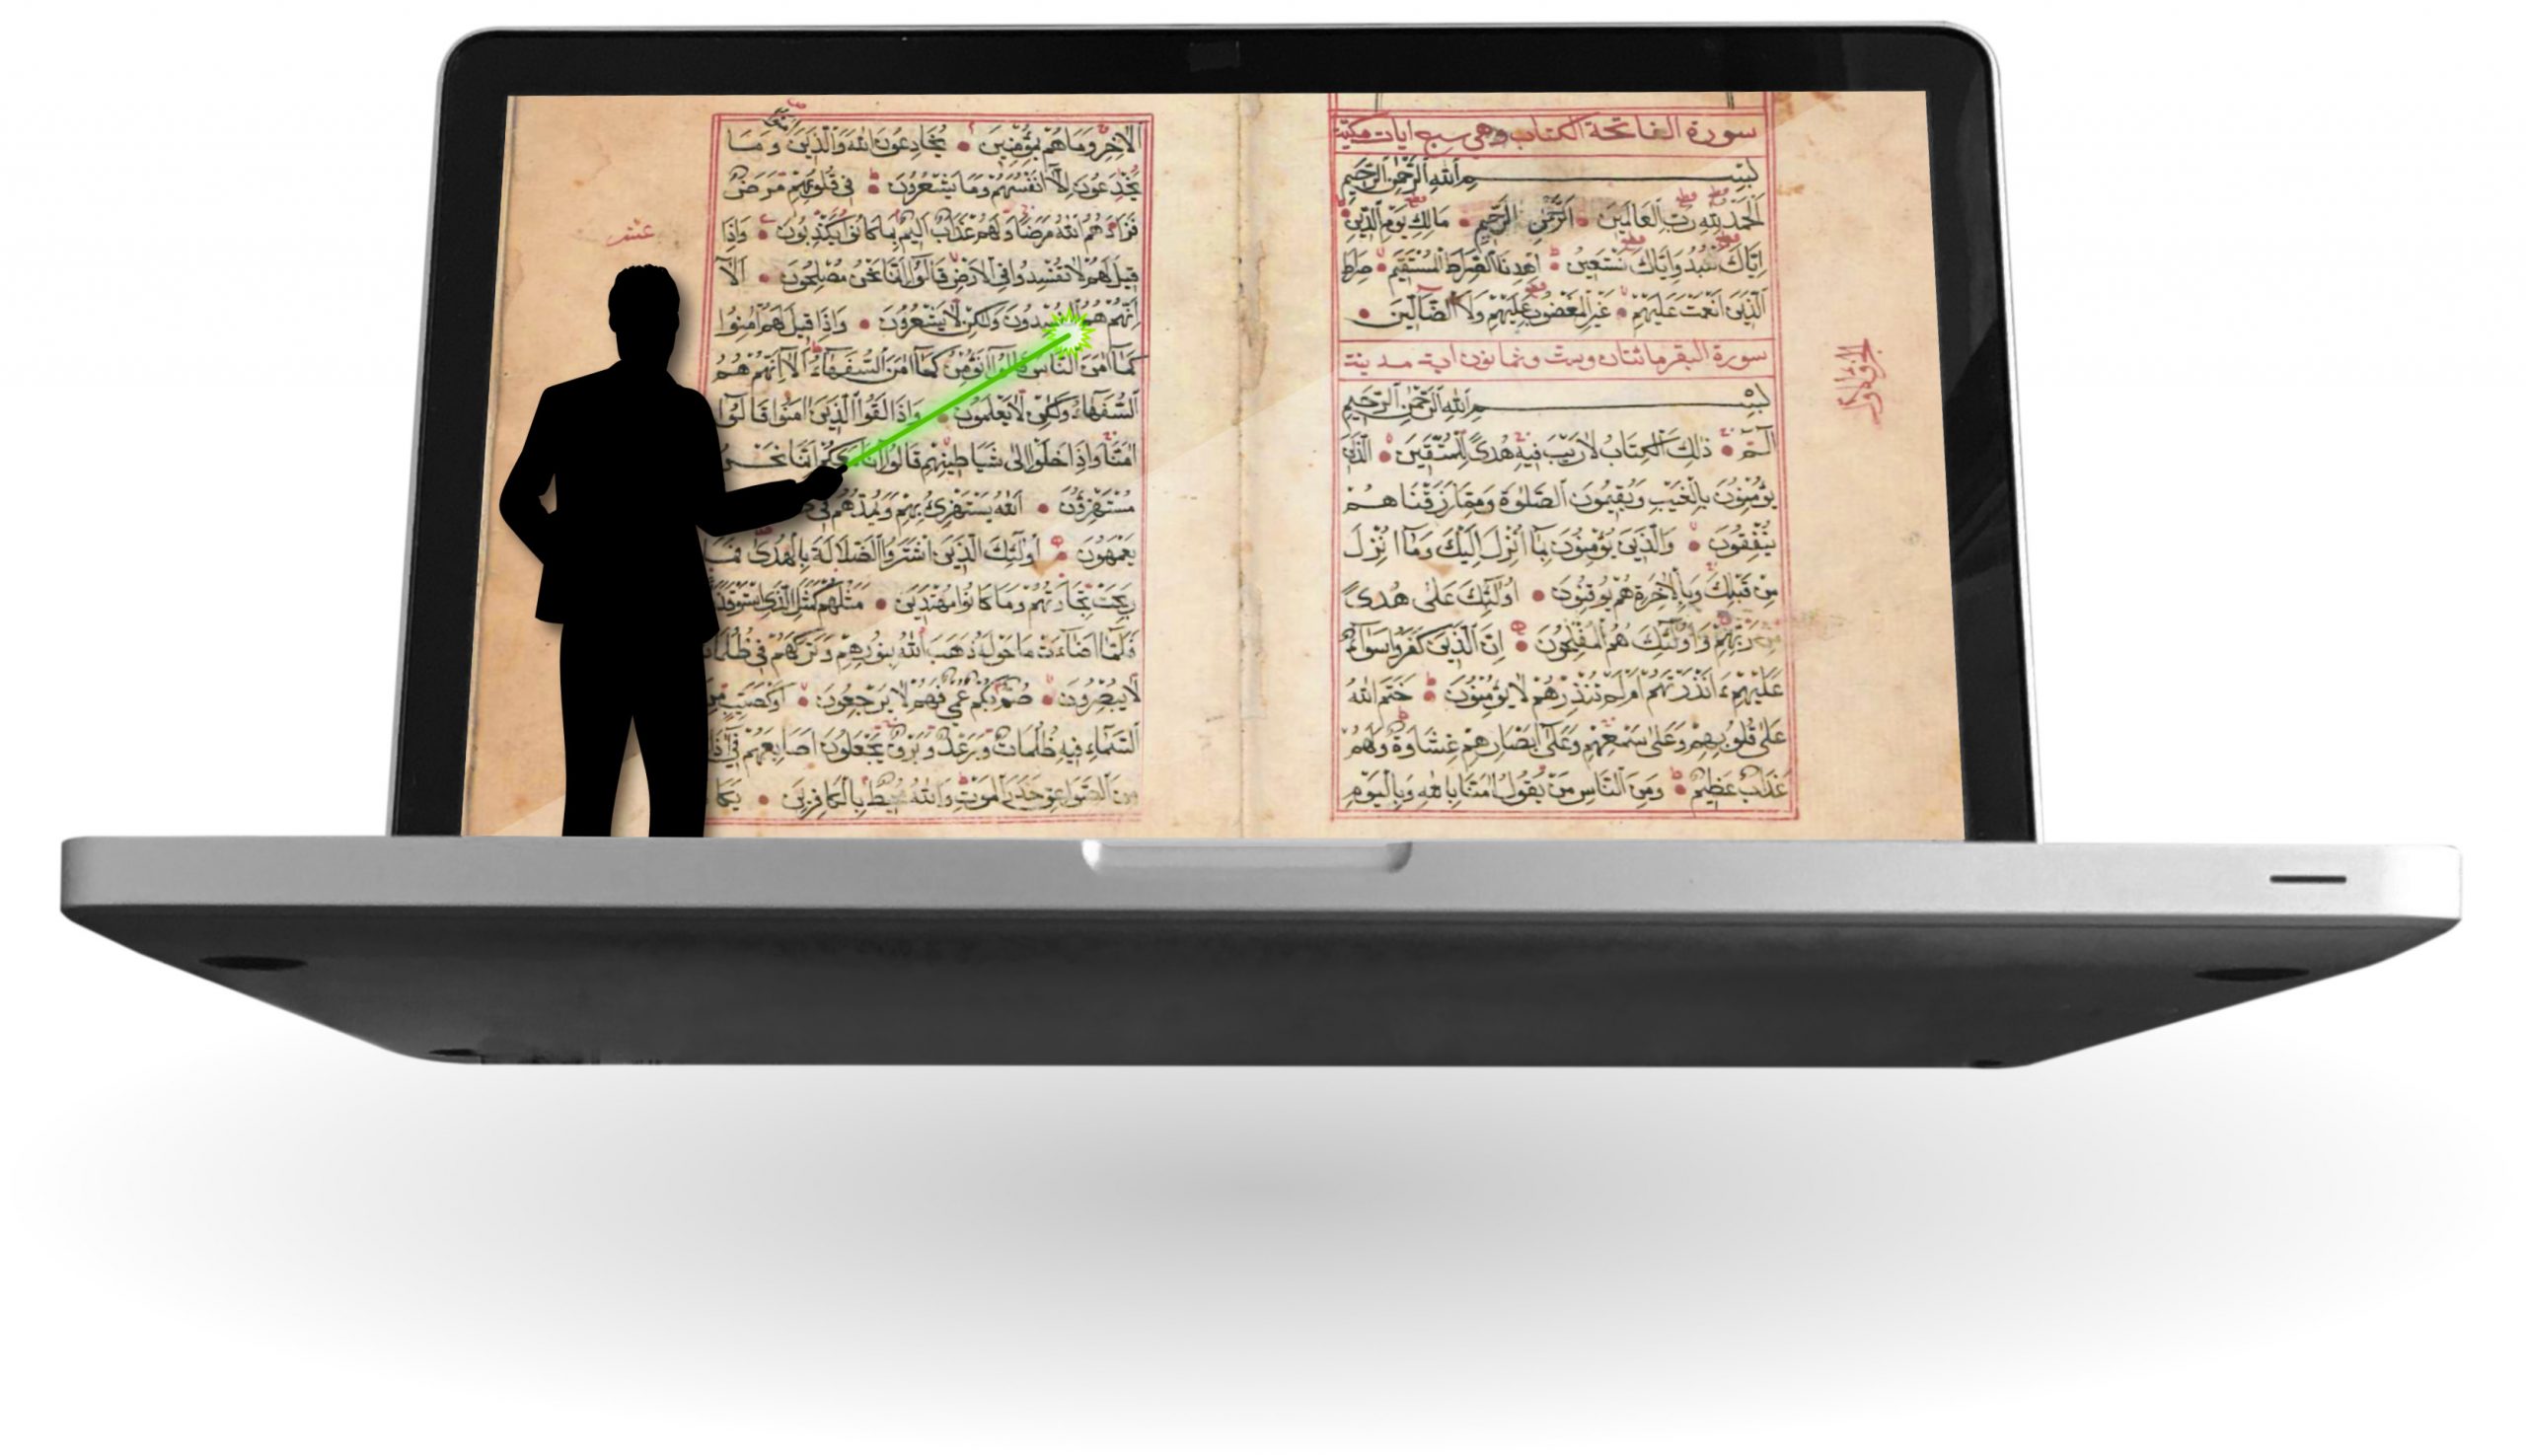 سورة الفاتحة الكتاب وهي سبع ايات مكية
بسم الله الرحمن الرحيم
الحمد لله رب العالمين الرحمن الرحيم مالك يوم الدين
اياك نعبد واياك نستعين اهدنا الصراط المستقيم صراط
الذين انعمت عليهم غير المغضوب عليهم ولا الضالين
سورة البقر مائتان وست وثمانون اية مدينة
بسم الله الرحمن الرحيم
الم ذلك الكتاب لا ريب فيه هدى للمتقين الذين
يؤمنون بالغيب ويقيمون الصلوة ومما رزقناهم
ينفقون والذين يؤمنون بما انزل اليك وما انزل
من قبلك وبالاخرة هم يوقنون اولئك على هدى
من ربهم واولئك هم المفلحون ان الذين كفروا سواء
عليهم ءانذرتهم ام لم تنذرهم لا يؤمنون ختم الله
على قلوبهم وعلى سمعهم وعلى ابصارهم غشاوة ولهم
عذاب عظيم ومن الناس من يقول امنا بالله وباليوم
الجزء الاول
الاخر وما هم بمؤمنين يخادعون الله والذين وما
يخدعون الا انفسهم وما يشعرون في قلوبهم مرض
فزادهم الله مرضا ولهم عذاب اليم بما كانوا يكذبون واذا
قيل لهم لا تفسدوا في الارض قالوا انما نحن مصلحون الا
انهم هم ولكن لا يشعرون واذا قيل لهم امنوا
كما امن الناس انؤمن كما امن السفهاء الا انهم هم
السفهاء ولكن لا يعلمون واذا لقوا الذين امنوا قالوا
امنا واذا خلوا الى شياطينهم قالوا انما نحن
مستهزؤن الله يستهزئ بهم ويمدهم في
يعمهون اولئك الذين اشتروا الضلالة بالهدى فما
ربحت تجارتهم وما كانوا مهتدين مثلهم كمثل الذي استوقد
فلما اضاءت ما حوله ذهب الله بنورهم وتركهم في ظلمات
لا يبصرون صم بكم عمي فهم لا يرجعون او كصيب من
السماء فيه ظلمات ورعد وبرق يجعلون اصابعهم في
من الصواعق حذر الموت والله محيط بالكافرين
عشر